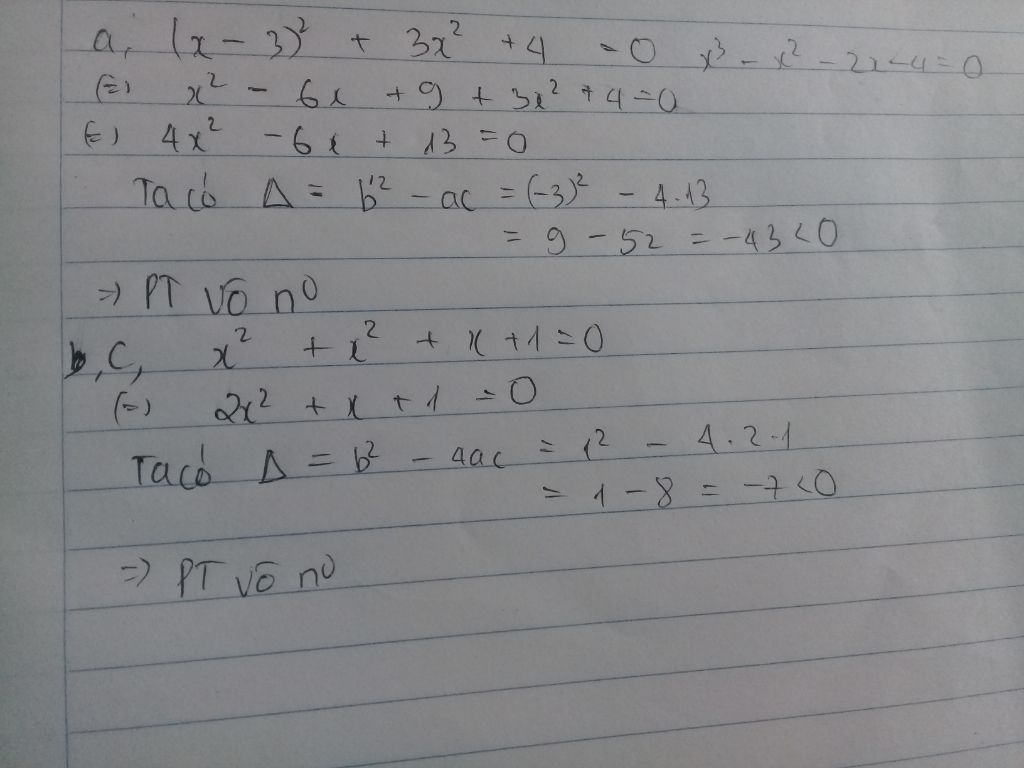 a, (x - 3)² + 3x² + 4 = 0 x³ - x² - 2x - 4 = 0
(=) x² - 6x + 9 + 3x² + 4 = 0
(=) 4x² - 6x + 13 = 0
Ta có Δ = b'² - ac = (-3)² - 4.13
= 9 - 52 = -43 < 0
=) PT vô n⁰
C, x² + x² + x + 1 = 0
(=) 2x² + x + 1 = 0
Ta có Δ = b² - 4ac = 1² - 4.2.1
= 1 - 8 = -7 < 0
=) PT vô n⁰